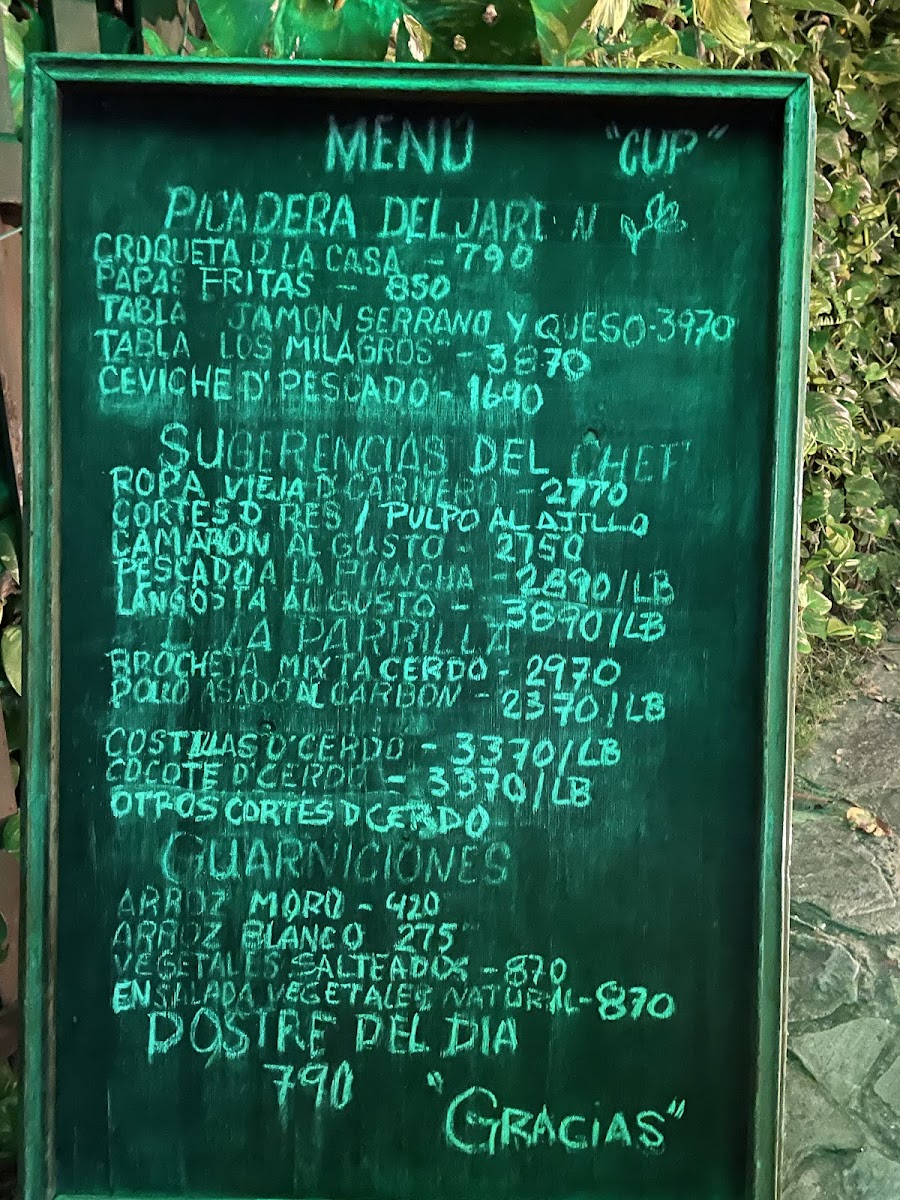 MENÚ "CUP"
PICADERA DEL JARDIN
CROQUETA D' LA CASA - 790
PAPAS FRITAS - 850
TABLA JAMON SERRANO Y QUESO-3970
TABLA "LOS MILAGROS" - 3870
CEVICHE D' PESCADO - 1690
SUGERENCIAS DEL CHEF
ROPA VIEJA D' CARNERO - 2770
CORTES D RES / PULPO AL AJILLO
CAMARON AL GUSTO - 2750
PESCADO A LA PLANCHA - 2890/LB
LANGOSTA AL GUSTO - 3890/LB
LA PARRILLA
BROCHETA MIXTA CERDO - 2970
POLLO ASADO AL CARBON - 2370/LB
COSTILLAS D' CERDO - 3370/LB
COCOTE D' CERDO - 3370/LB
OTROS CORTES D CERDO
GUARNICIONES
ARROZ MORO - 420
ARROZ BLANCO 275
VEGETALES SALTEADOS - 870
ENSALADA VEGETALES NATURAL - 870
POSTRE DEL DIA
790
"GRACIAS"